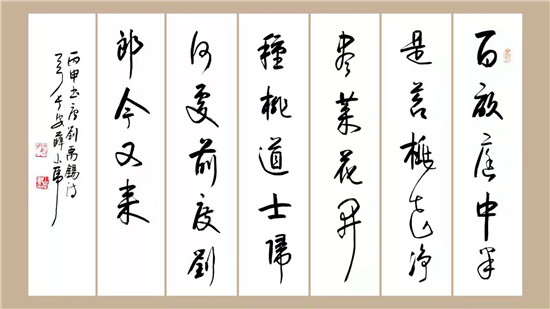 百畝庭中半
是苔桃花净
盡菜花開
種桃道士歸
何處前度劉
郎今又来
丙申书唐劉禹錫诗
安薛